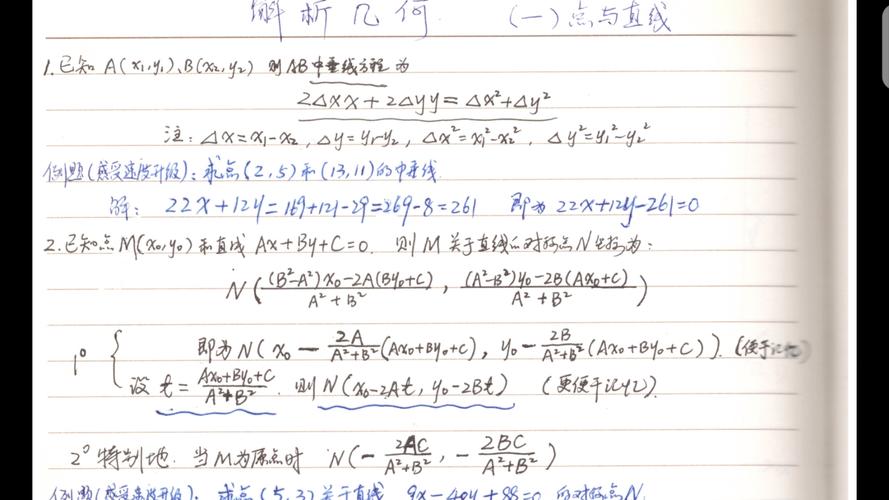 解析几何 (一) 点与直线
1.已知 A(x₁,y₁)、B(x₂,y₂) 则AB中垂线方程为
2△xx+2△yy=△x²+△y²
注:△x=x₁-x₂,△y=y₁-y₂,△x²=x₁²-x₂²,△y²=y₁²-y₂²
例题(感受速度升级):求点(2,5)和(13,11)的中垂线.
解: 22x+12y=169+121-29=269-8=261 即为 22x+12y-261=0
2.已知点M(x₀,y₀)和直线 Ax+By+C=0. 则M关于直线的对称点N坐标为:
N((B²-A²)x₀-2A(By₀+C)/A²+B², (A²-B²)y₀-2B(Ax₀+C)/A²+B²)
1° { 即为N(x₀-2A/A²+B²(Ax₀+By₀+C), y₀-2B/A²+B²(Ax₀+By₀+C)).(便于记忆)
设t=Ax₀+By₀+C/A²+B². 则N(x₀-2At, y₀-2Bt) (更便于记忆).
2° 特别地. 当M为原点时 N(-2AC/A²+B², -2BC/A²+B²)
例题(感受速度升级). 求点(5,3)关于直线 9x-40y+88=0 的对称点N